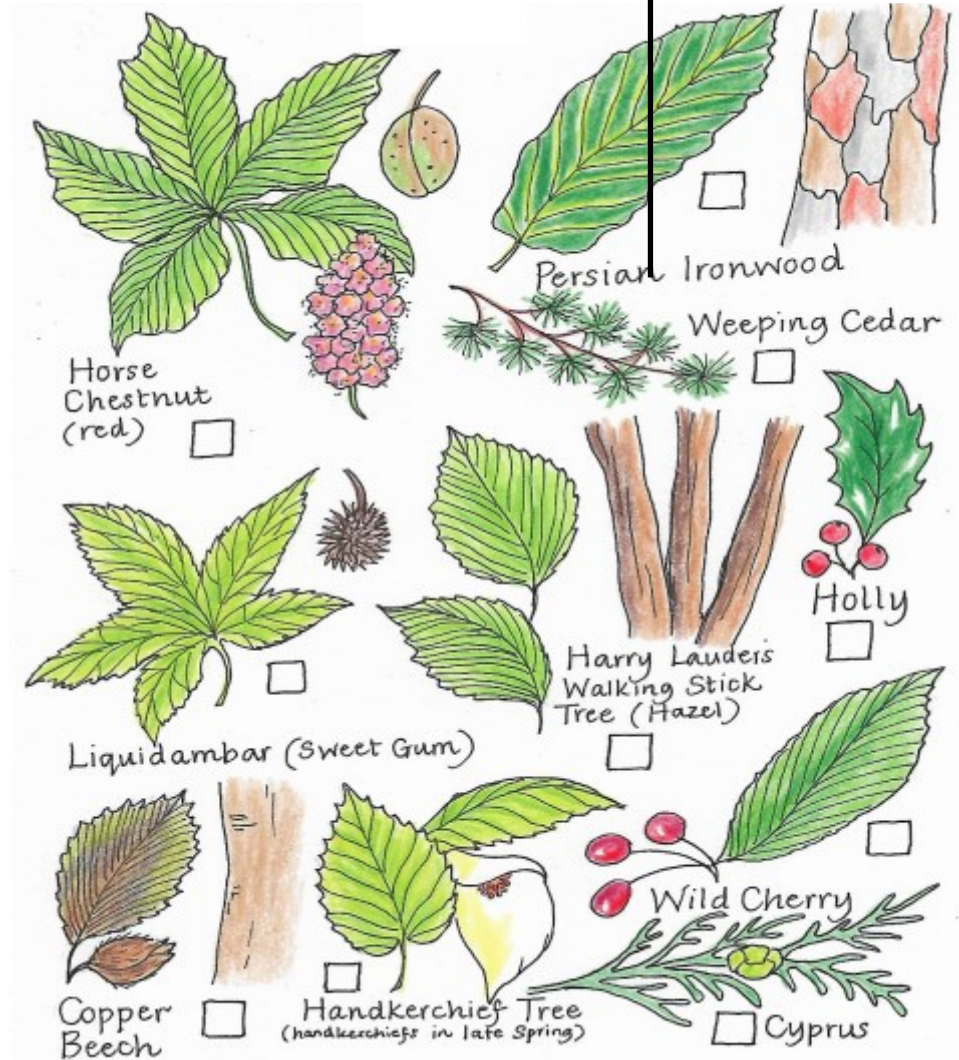 Persian Ironwood
Weeping Cedar
Horse
Chestnut
(red)
Holly
Harry Lauder's
Walking Stick
Tree (Hazel)
Liquidambar (Sweet Gum)
Wild Cherry
Copper
Beech
Handkerchief Tree
(handkerchiefs in late Spring)
Cyprus